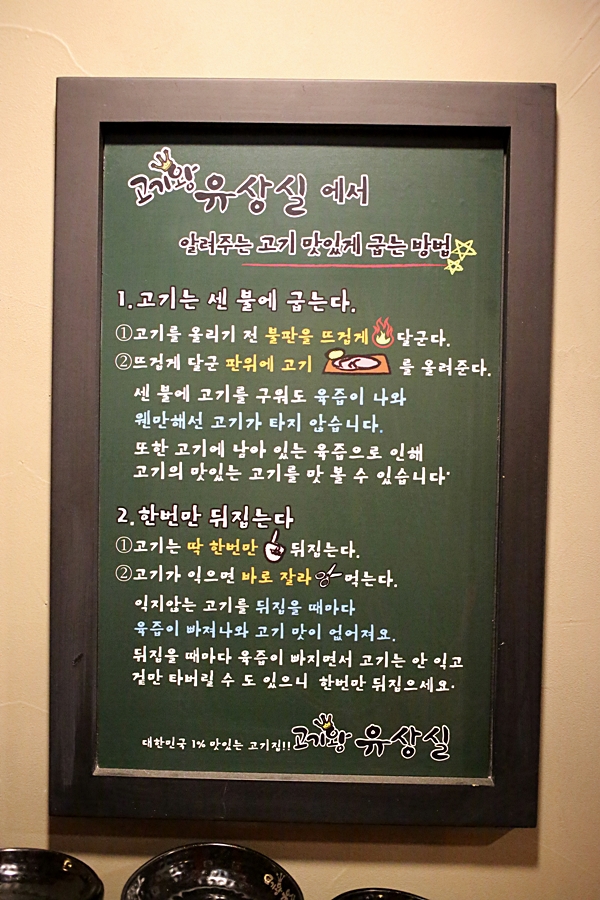 고기왕 유상실 에서
알려주는 고기 맛있게 굽는 방법
1. 고기는 센 불에 굽는다.
①고기를 올리기 전 불판을 뜨겁게 달군다.
②뜨겁게 달군 판위에 고기 를 올려준다.
센 불에 고기를 구워도 육즙이 나와
웬만해선 고기가 타지 않습니다.
또한 고기에 남아 있는 육즙으로 인해
고기의 맛있는 고기를 맛 볼 수 있습니다.
2. 한번만 뒤집는다
①고기는 딱 한번만 뒤집는다.
②고기가 익으면 바로 잘라 먹는다.
익지않는 고기를 뒤집을 때마다
육즙이 빠져나와 고기 맛이 없어져요.
뒤집을 때마다 육즙이 빠지면서 고기는 안 익고
겉만 타버릴 수 도 있으니 한번만 뒤집으세요.
대한민국 1% 맛있는 고기집!! 고기왕 유상실